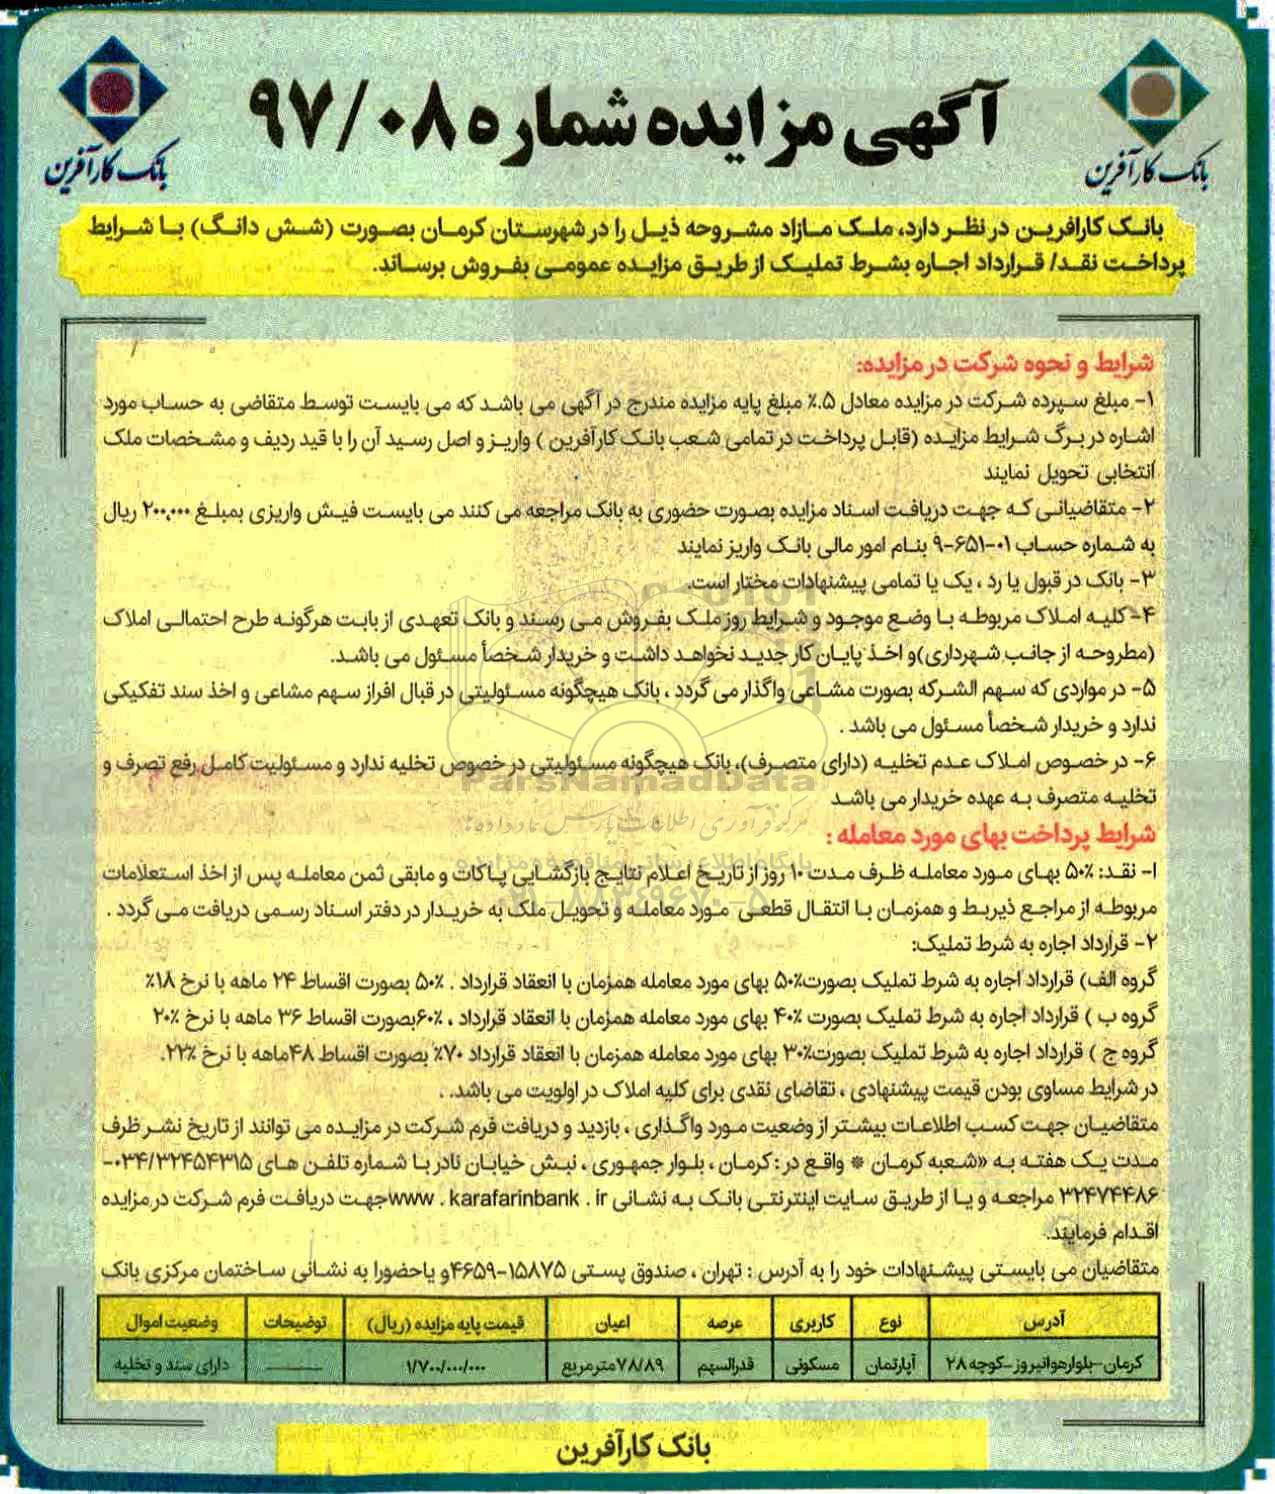 آگهی مزایده شماره ۹۷/۰۸
بانک کارآفرین
بانک کارآفرین
بانک کارافرین در نظر دارد، ملک مازاد مشروحه ذیل را در شهرستان کرمان بصورت (شش دانگ) با شرایط
پرداخت نقد/ قرارداد اجاره بشرط تملیک از طریق مزایده عمومی بفروش برساند.
شرایط و نحوه شرکت در مزایده:
۱- مبلغ سپرده شرکت در مزایده معادل ۵.٪ مبلغ پایه مزایده مندرج در آگهی می باشد که می بایست توسط متقاضی به حساب مورد
اشاره در برگ شرایط مزایده (قابل پرداخت در تمامی شعب بانک کارآفرین ) واریز و اصل رسید آن را با قید ردیف و مشخصات ملک
انتخابی تحویل نمایند
۲- متقاضیانی که جهت دریافت اسناد مزایده بصورت حضوری به بانک مراجعه می کنند می بایست فیش واریزی بمبلغ ۲۰۰,۰۰۰ ریال
به شماره حساب ۰۱-۶۵۱-۹ بنام امور مالی بانک واریز نمایند
۳- بانک در قبول یا رد ، یک یا تمامی پیشنهادات مختار است.
۴- کلیه املاک مربوطه با وضع موجود و شرایط روز ملک بفروش می رسند و بانک تعهدی از بابت هرگونه طرح احتمالی املاک
(مطروحه از جانب شهرداری)و اخذ پایان کار جدید نخواهد داشت و خریدار شخصاً مسئول می باشد.
۵- در مواردی که سهم الشرکه بصورت مشاعی واگذار می گردد ، بانک هیچگونه مسئولیتی در قبال افراز سهم مشاعی و اخذ سند تفکیکی
ندارد و خریدار شخصاً مسئول می باشد .
۶- در خصوص املاک عدم تخلیه (دارای متصرف)، بانک هیچگونه مسئولیتی در خصوص تخلیه ندارد و مسئولیت کامل رفع تصرف و
تخلیه متصرف به عهده خریدار می باشد
ParsNamadData
شرایط پرداخت بهای مورد معامله :
۱- نقد: ۵۰٪ بهای مورد معامله ظرف مدت ۱۰ روز از تاریخ اعلام نتایج بازگشایی پاکات و مابقی ثمن معامله پس از اخذ استعلامات
مربوطه از مراجع ذیربط و همزمان با انتقال قطعی مورد معامله و تحویل ملک به خریدار در دفتر اسناد رسمی دریافت می گردد .
۲- قرارداد اجاره به شرط تملیک:
گروه الف) قرارداد اجاره به شرط تملیک بصورت۵۰٪ بهای مورد معامله همزمان با انعقاد قرارداد . ۵۰٪ بصورت اقساط ۲۴ ماهه با نرخ ۱۸٪
گروه ب ) قرارداد اجاره به شرط تملیک بصورت ۴۰٪ بهای مورد معامله همزمان با انعقاد قرارداد ، ۶۰٪بصورت اقساط ۳۶ ماهه با نرخ ۲۰٪
گروه ج ) قرارداد اجاره به شرط تملیک بصورت۳۰٪ بهای مورد معامله همزمان با انعقاد قرارداد ۷۰٪ بصورت اقساط ۴۸ماهه با نرخ ۲۲٪.
در شرایط مساوی بودن قیمت پیشنهادی ، تقاضای نقدی برای کلیه املاک در اولویت می باشد. .
متقاضیان جهت کسب اطلاعات بیشتر از وضعیت مورد واگذاری ، بازدید و دریافت فرم شرکت در مزایده می توانند از تاریخ نشر ظرف
مدت یک هفته به «شعبه کرمان * واقع در : کرمان ، بلوار جمهوری ، نبش خیابان نادر با شماره تلفن های ۰۳۴/۳۲۴۵۴۳۱۵-
۳۲۴۷۴۴۸۶ مراجعه و یا از طریق سایت اینترنتی بانک به نشانی www . karafarinbank . ir جهت دریافت فرم شرکت در مزایده
اقدام فرمایند.
متقاضیان می بایستی پیشنهادات خود را به آدرس : تهران ، صندوق پستی ۱۵۸۷۵-۴۶۵۹و یاحضورا به نشانی ساختمان مرکزی بانک
آدرس نوع کاربری عرصه اعیان قیمت پایه مزایده (ریال) توضیحات وضعیت اموال
کرمان-بلوارهوانیروز-کوچه ۲۸ آپارتمان مسکونی قدرالسهم ۷۸/۸۹مترمربع ۱/۷۰۰/۰۰۰/۰۰۰ ــــــــ دارای سند و تخلیه
بانک کارآفرین